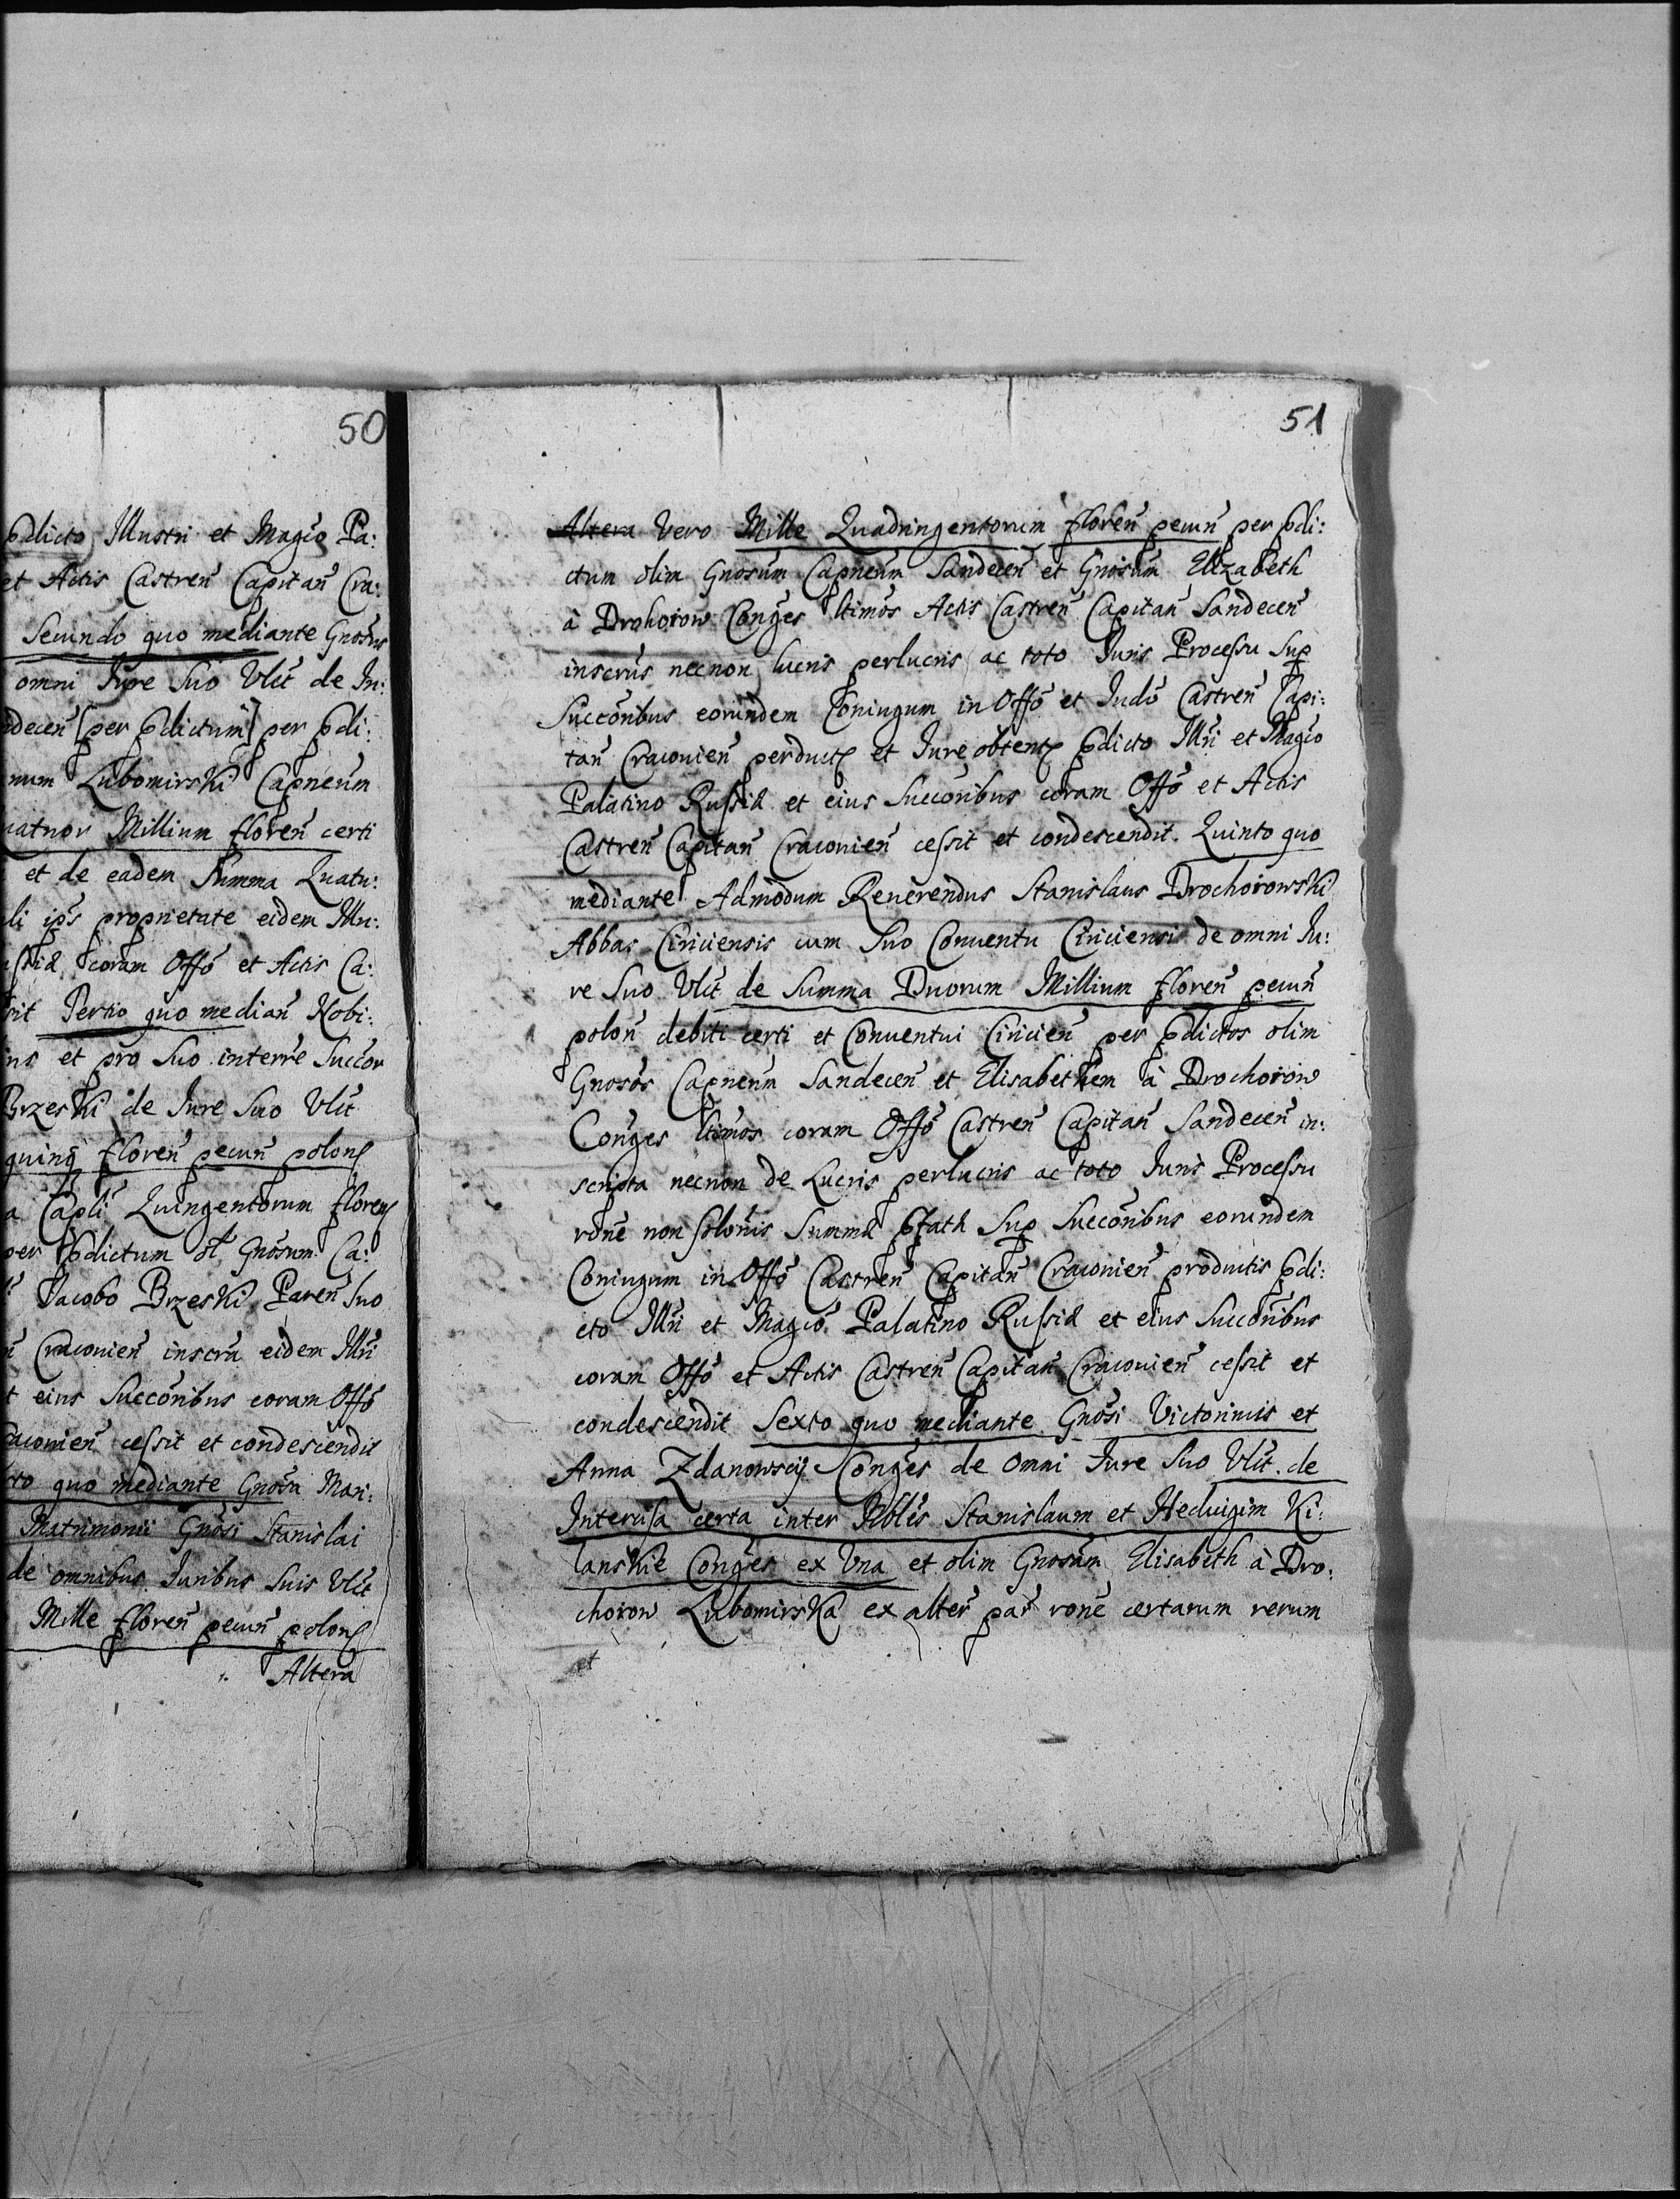 50
pdicto Illustri et Magco Pa:
et Actis Castren Capitan Cra:
Secundo quo mediante Gnosus
omni Jure Suo Vlit de In:
decen [per pdictum] per pdi:
num Lubomirski Capneum
uatuor Millium floren certi
et de eadem Summa Quatu:
li ips proprietate eidem Illu:
ssiæ coram Offo et Actis Ca:
sit Tertio quo median Nobi:
ns et pro Suo interre Succor
Brzeski de Jure Suo Vlit
quinq floren pecun polon
a Capli Quingentorum floren
per pdictum ol Gnosum Ca:
Jacobo Brzeski Paren Suo
n Cracovien inscra eidem Illri
t eius Succoribus coram Offo
racovien cessit et condescendit
rto quo mediante Gnosa Mari:
Matrimonii Gnosi Stanislai
de omnibus Juribus Suis Vlit
Mille floren pecun polon
Altera
51
Altera Vero Mille Quadringentorum floren pecun per pdi:
ctum olim Gnosum Capneum Sandecen et Gnosam Elizabeth
à Drohoiow Conges ltimos Actis Castren Capitan Sandecen
inscris necnon lucris perlucris ac toto Juris Processu Sup
Succoribus eorundem Coniugum in Offo et Judo Castren Capi:
tan Cracovien perduct et Jure obtent pdicto Illri et Magco
Palatino Russiæ et eius Succoribus coram Offo et Actis
Castren Capitan Cracovien cessit et condescendit. Quinto quo
mediante Admodum Reuerendus Stanislaus Drochoiowski
Abbas Ciriciensis cum Suo Conuentu Ciriciensi de omni Ju:
re Suo Vlit de Summa Duorum Millium floren pecun
polon debiti certi et Conuentui Ciricien per pdictos olim
Gnosos Capneum Sandecen et Elisabethem à Drochoiow
Conges ltimos coram Offo Castren Capitan Sandecen in:
scripta necnon de Lucris perlucris ac toto Juris Processu
rone non solonis Summæ pfatæ Sup Succoribus eorundem
Coniugum in Offo Castren Capitan Cracovien productis pdi:
cto Illri et Magco Palatino Russiæ et eius Succoribus
coram Offo et Actis Castren Capitan Cracovien cessit et
condescendit Sexto quo mediante Gnosi Victorinus et
Anna Zdanowscij Conges de Omni Jure Suo Vlit. de
Intercisa certa inter Nbles Stanislaum et Heduigim Ki:
lanskie Conges ex Vna et olim Gnosam Elisabeth à Dro:
choiow Lubomirska ex alter par rone certarum rerum
et